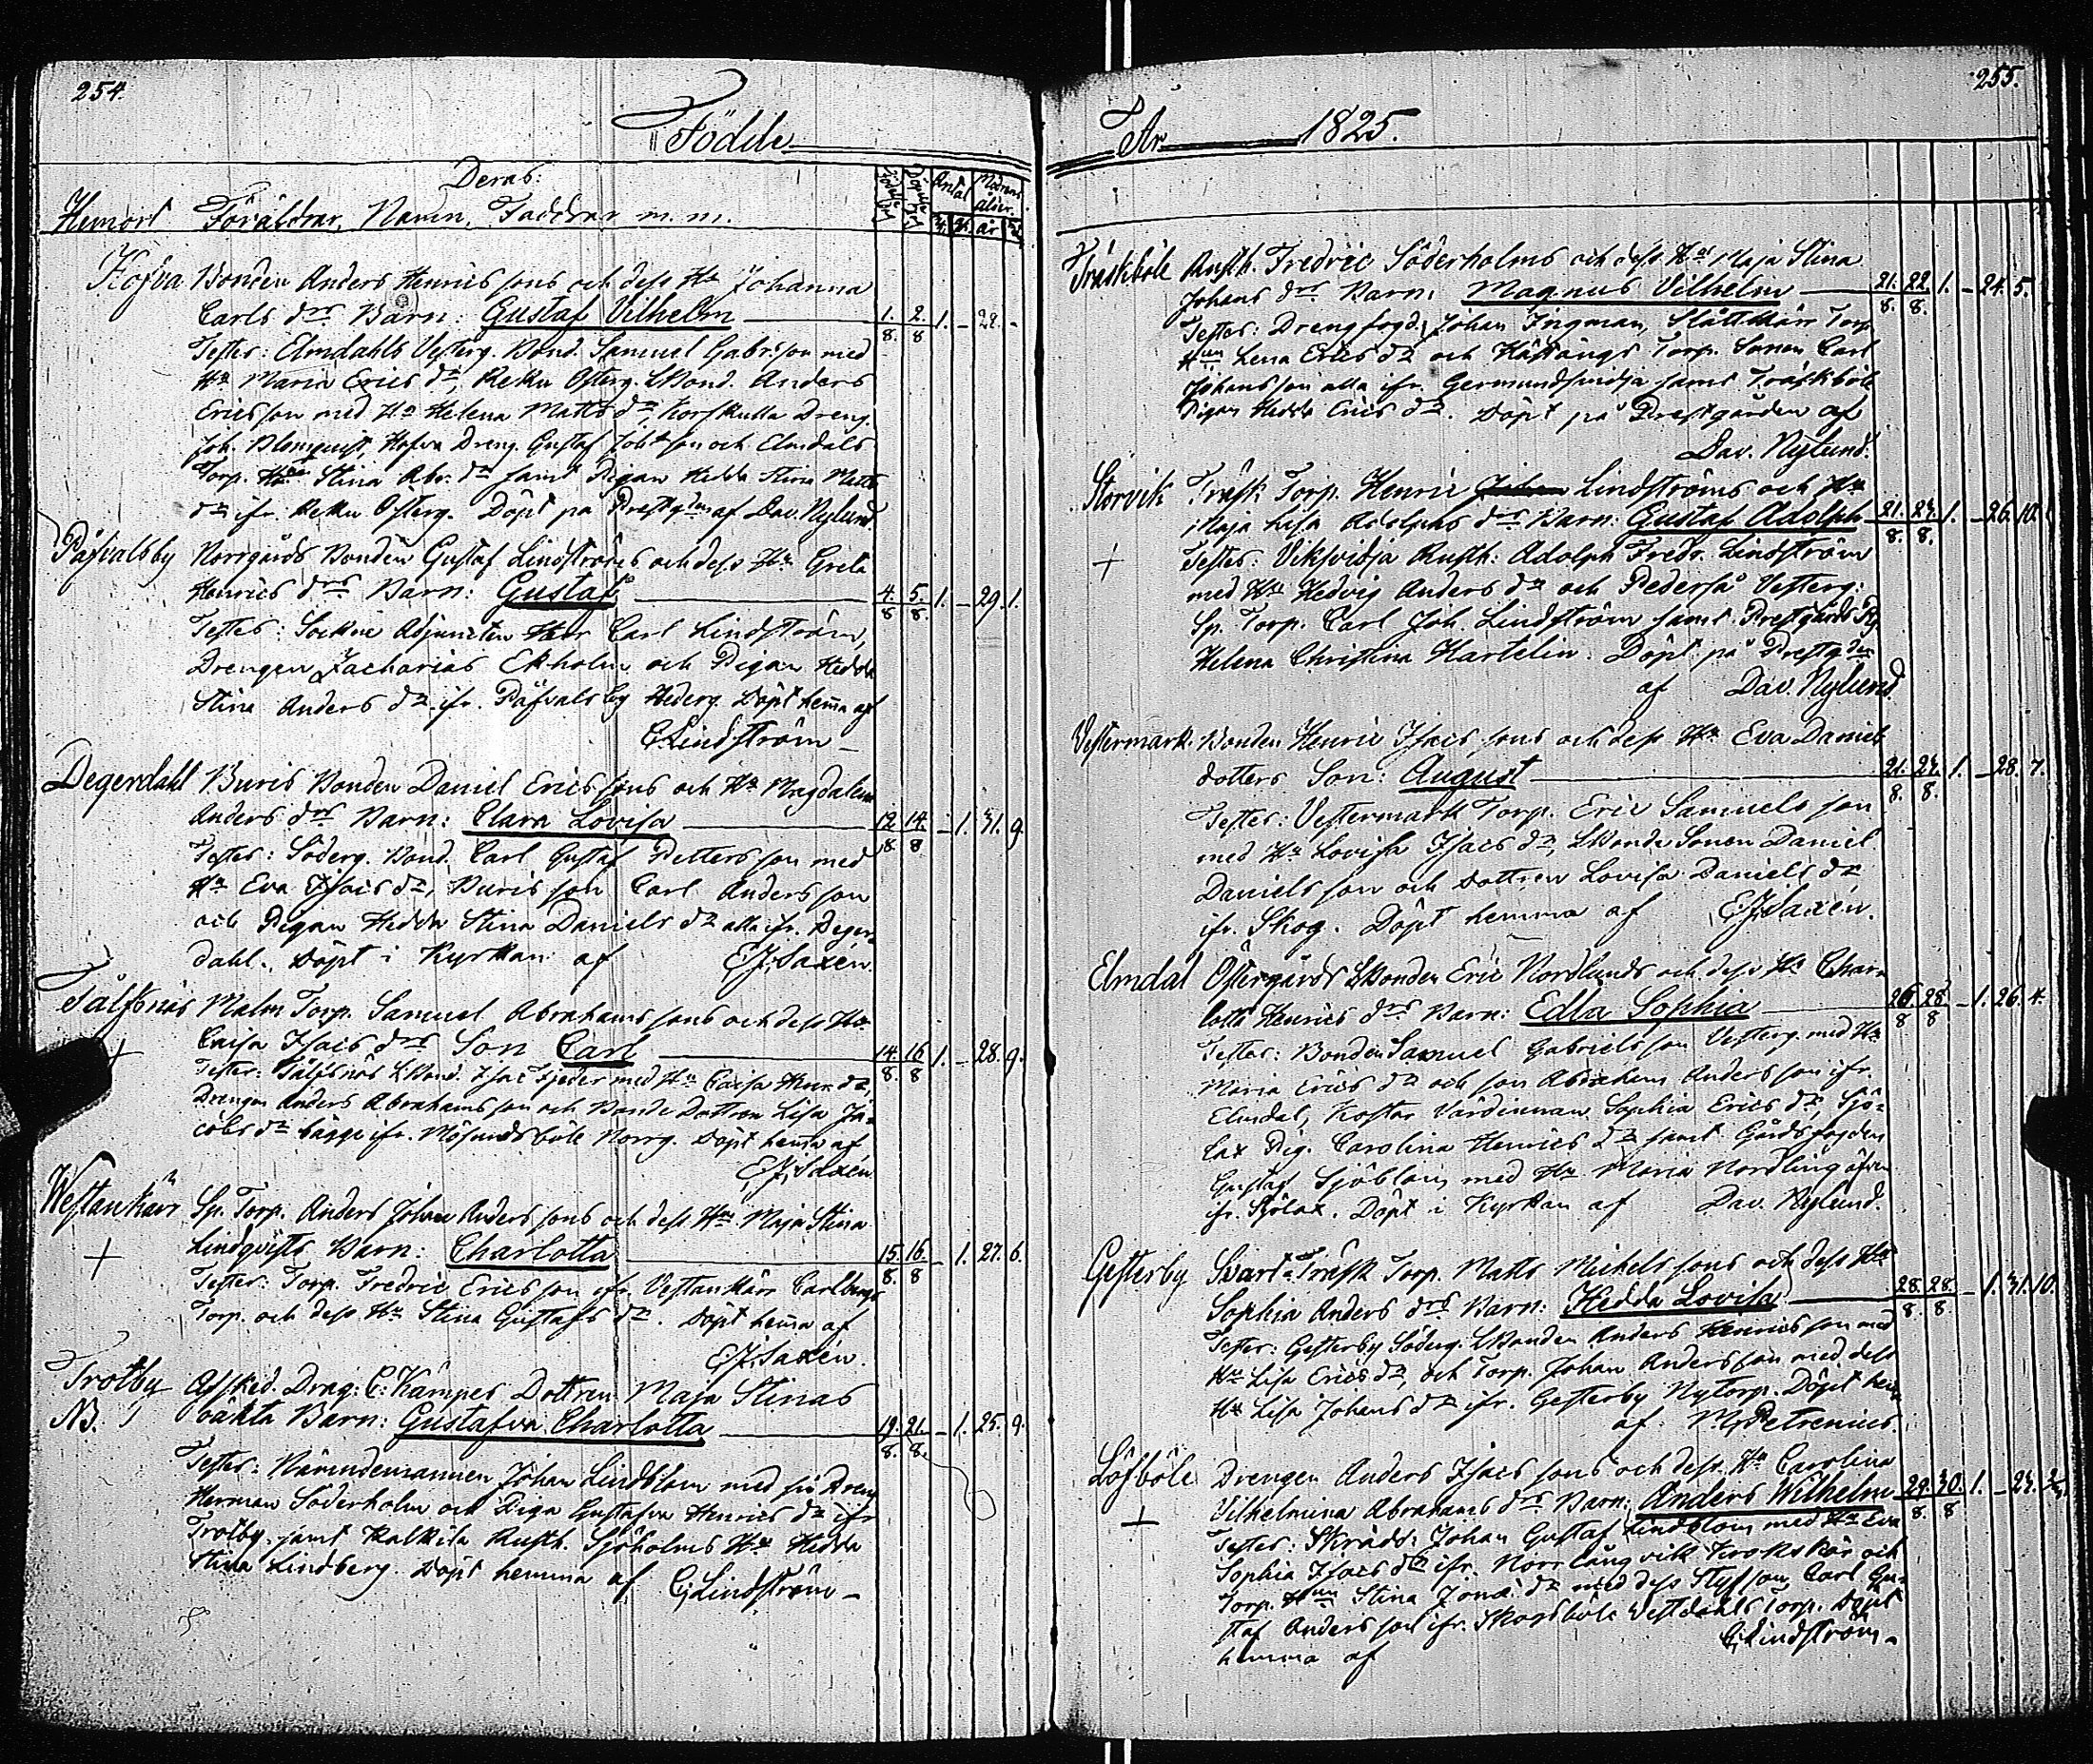 254.
Födde
Deras:
Hemort Föräldrar, Namn, Faddrar m. m.
Födelse dag Döpelse dag Antal Modrens ålder.
år
Hofva Bonden Anders Henrics sons och dess Hu Johanna
Carls drs Barn: Gustaf Vilhelm 1. 2. 1. - 22. -
8. 8
Testes: Elmdahls Vesterg. Bond. Samuel Gabr.son med
Hu Maria Erics dr, Reku Osterg. LBond. Anders
Ericsson med Hu Helena Matts dr, Korskulla Dreng.
Joh. Blomquist, Hofva Dreng Gustaf Joh.son och Elmdals
Torp. Hun Stina Abr. dr samt Pigan Hedda Stina Matts
dr ifr. Reku Osterg. Döpt på Prestgden af Dav. Nylund.
Påfvalsby Norrgårds Bonden Gustaf Lindströms och dess Hu Greta
Henrics drs Barn: Gustaf 4. 5. 1. - 29. 1.
8 8.
Testes: Sockne Adjuncten Herr Carl Lindström,
Drengen Zacharias Ekholm och Pigan Hedda
Stina Anders dr ifr. Påfvalsby Hederg. Döpt hema af
C. Lindström -
Degerdahl Buris Bonden Daniel Erics sons och Hu Magdalena
Anders drs Barn: Clara Lovisa 12 14. - 1. 31. 9.
8 8
Testes: Söderg. Bond. Carl Gustaf Petters son med
Hu Eva Isacs dr, Buris son Carl Anders son
och Pigan Hedda Stina Daniels dr alla ifr. Deger-
dahl. Döpt i Kyrkan af E. J. Saxén.
Tålsnäs Malm Torp. Samuel Abrahams sons och dess Hu
+ Caisa Isacs drs Son Carl 14. 16 1. - 28. 9.
8. 8
Testes: Tålsnäs LBond. Isac Fjeder med Hu Caisa Henr. dr,
Drengen Anders Abrahams son och Bonde Dottren Lisa Ja-
cobs dr bägge ifr. Mösundsböle Norrg. Döpt hema af
E. J. Saxén
Westankärr Sp. Torp. Anders Johan Anders sons och dess Hu Maja Stina
+ Lindqvists Barn: Charlotta 15. 16. - 1. 27. 6.
8. 8
Testes: Torp. Fredric Ericsson ifr. Vestankärr Carlbergs
Torp. och dess Hu Stina Gustafs dr. Döpt hema af
E. J. Saxén.
Trotby Afsked. Drag: C: Kämpes Dottren Maja Stinas
NB. oäkta Barn: Gustafva Charlotta 19. 21. - 1. 25. 9.
8. 8.
Testes: Nämndemannen Johan Lindblom med sin Dreng
Herman Söderholm och Piga Gustafva Henrics dr ifr
Trotby samt Kalkila Rusth. Sjöholms Hu Hedda
Stina Lindberg. Döpt hemma af C. Lindström -
255.
År 1825.
Träskböle Rusth. Fredric Söderholms och dess Hu Maja Stina
Johans drs Barn: Magnus Vilhelm 21. 22. 1. - 24. 5.
8. 8.
Testes: Drengfogd. Johan Ingman, Slättkärr Torp.
Hun Lena Erics dr och Torp. Sonen Carl
Johansson alla ifr. Germundsvidja samt Träskböle
Pigan Hedda Erics dr. Döpt på Prestgården af
Dav. Nylund.
Storvik Träsk Torp. Henric Lindströms och Hu
Maja Lisa Adolphs drs Barn: Gustaf Adolph 21. 24. 1. - 26. 10.
8. 8.
+ Testes: Viksvidja Rusth: Adolph Fredr. Lindström
med Hu Hedvig Anders dr och Pederså Vesterg:
Sp. Torp. Carl Joh. Lindström samt Prestgårds Pig
Helena Christina Hartelin. Döpt på Prestgden
af Dav. Nylund
Vestermark Bonden Henric Isacs sons och dess Hu Eva Daniels
dotters Son: August 21. 24. 1. - 28. 7.
8. 8.
Testes: Vestermark Torp. Eric Samuels son
med Hu Lovisa Isacs dr, LBonde Sonen Daniel
Daniels son och Dottren Lovisa Daniels dr
ifr. Skog. Döpt hemma af E. J. Saxén.
Elmdal Östergårds LBonden Eric Nordlunds och dess Hu Char-
lotta Henrics drs Barn: Edla Sophia 26. 28 - 1. 26. 4.
8 8
Testes: Bonden Samuel Gabriels son Vesterg. med Hu
Maria Erics dr och son Abraham Anders son ifr.
Elmdal, Kostar Värdinnan Sophia Erics dr, Sjö-
lax Pig. Carolina Henrics dr samt Gårdsfogden
Gustaf Sjöblom med Hu Maria Nordling äfven
ifr. Sjölax. Döpt i Kyrkan af Dav. Nylund.
Gesterby Svart-Träsk Torp. Matts Michels sons och dess Hu
Sophia Anders drs Barn: Hedda Lovisa 28. 28. - 1. 31. 10.
8. 8.
Testes: Gesterby Söderg. LBonden Anders Henrics son med
Hu Lisa Erics dr, och Torp. Johan Andersson med dess
Hu Lisa Johans dr ifr. Gesterby Nytorp. Döpt hema
af M. G. Petrenius.
Löfböle Drengen Anders Isacs sons och dess Hu Carolina
+ Vilhelmina Abrahams drs Barn: Anders Wilhelm 29. 30. 1. - 24.
8. 8
Testes: Skrädd: Johan Gustaf Lindblom med Hu Eva
Sophia Isacs dr ifr. Norrlångvik Krokskär och
Torp. Hun Stina Jonæ dr med dess Styfson Carl Gu-
staf Anders son ifr. Skogsböle Westdahls Torp. Döpt
hemma af C. Lindström -